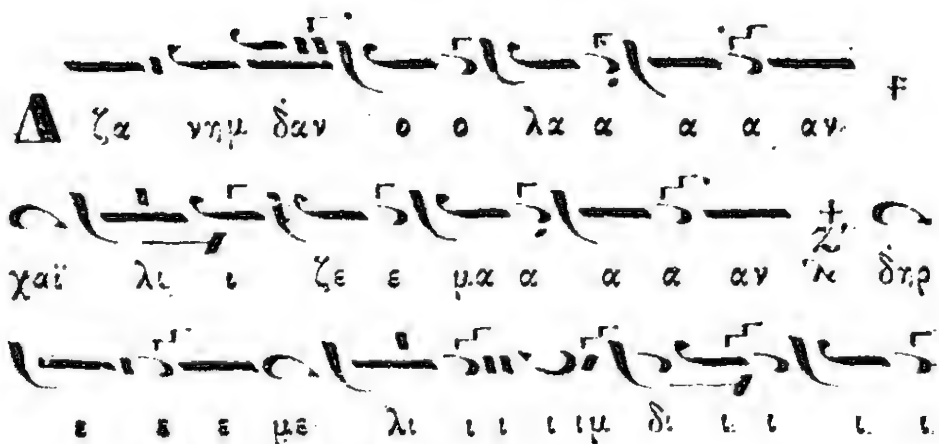 Δ ζα νημ δ̇αν ο ο λα α α α αν
χαϊ λι ι ζε ε μα α α α αν δ̇ηρ
ε ε ε με λι ι ι ι ιμ δι ι ι ι ι